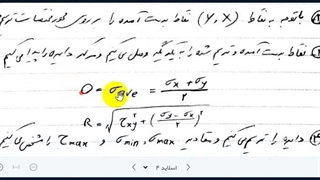 با توجه به نقاط (X , Y) نقاط بدست آمده را بر روی محور مختصات
نقاط بدست آمده و ترسیم شده را به یکدیگر وصل می‌کنیم و مرکز دایره را پیدا می‌کنیم
O = σave = (σx + σy) / ۲
R = √(τxy² + ((σy − σx) / ۲)²)
دایره را ترسیم می‌کنیم و مقادیر σmin , σmax و τmax را مشخص می‌کنیم
اسلاید ۴